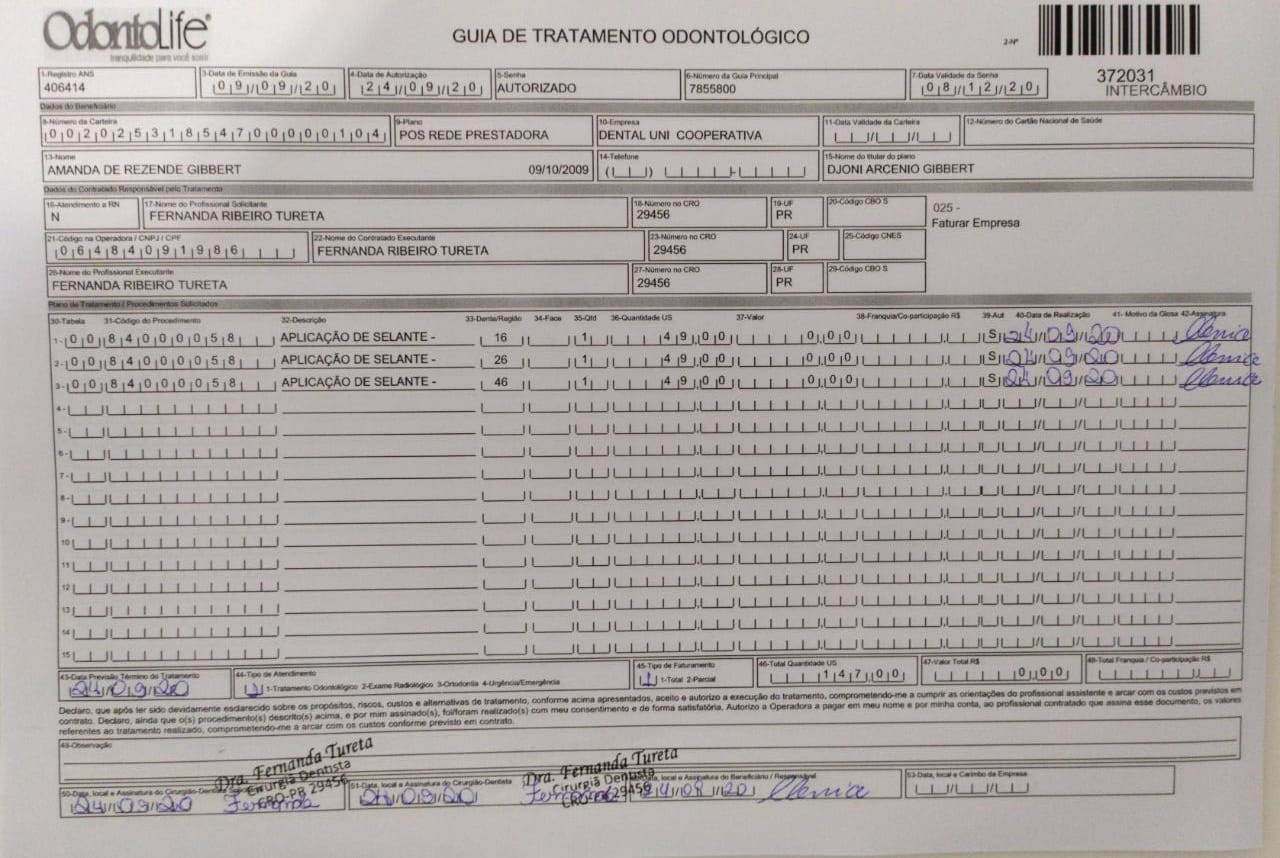 OdontoLife®
tranquilidade para você sorrir
GUIA DE TRATAMENTO ODONTOLÓGICO
2-Nº
372031
INTERCÂMBIO
1-Registro ANS
406414
3-Data de Emissão da Guia
09/09/20
4-Data de Autorização
24/09/20
5-Senha
AUTORIZADO
6-Número da Guia Principal
7855800
7-Data Validade da Senha
08/12/20
Dados do Beneficiário
8-Número da Carteira
00202531854700000104
9-Plano
POS REDE PRESTADORA
10-Empresa
DENTAL UNI COOPERATIVA
11-Data Validade da Carteira
12-Número do Cartão Nacional de Saúde
13-Nome
AMANDA DE REZENDE GIBBERT 09/10/2009
14-Telefone
15-Nome do titular do plano
DJONI ARCENIO GIBBERT
Dados do Contratado Responsável pelo Tratamento
16-Atendimento a RN
N
17-Nome do Profissional Solicitante
FERNANDA RIBEIRO TURETA
18-Número no CRO
29456
19-UF
PR
20-Código CBO S
025 -
Faturar Empresa
21-Código na Operadora / CNPJ / CPF
06484091986
22-Nome do Contratado Executante
FERNANDA RIBEIRO TURETA
23-Número no CRO
29456
24-UF
PR
25-Código CNES
26-Nome do Profissional Executante
FERNANDA RIBEIRO TURETA
27-Número no CRO
29456
28-UF
PR
29-Código CBO S
Plano de Tratamento / Procedimentos Solicitados
30-Tabela 31-Código do Procedimento 32-Descrição 33-Dente/Região 34-Face 35-Qtd 36-Quantidade US 37-Valor 38-Franquia/Co-participação R$ 39-Aut 40-Data de Realização 41- Motivo da Glosa 42-Assinatura
1- 00 84000058 APLICAÇÃO DE SELANTE - 16 1 49,00 0,00 S 24/09/20 Clenice
2- 00 84000058 APLICAÇÃO DE SELANTE - 26 1 49,00 0,00 S 24/09/20 Clenice
3- 00 84000058 APLICAÇÃO DE SELANTE - 46 1 49,00 0,00 S 24/09/20 Clenice
4-
5-
6-
7-
8-
9-
10
11
12
13
14
15
43-Data Previsão Término do Tratamento
24/09/20
44-Tipo de Atendimento
1 1-Tratamento Odontológico 2-Exame Radiológico 3-Ortodontia 4-Urgência/Emergência
45-Tipo de Faturamento
1 1-Total 2-Parcial
46-Total Quantidade US
147,00
47-Valor Total R$
0,00
48-Total Franquia / Co-participação R$
Declaro, que após ter sido devidamente esclarecido sobre os propósitos, riscos, custos e alternativas de tratamento, conforme acima apresentados, aceito e autorizo a execução do tratamento, comprometendo-me a cumprir as orientações do profissional assistente e arcar com os custos previstos em
contrato. Declaro, ainda que o(s) procedimento(s) descrito(s) acima, e por mim assinado(s), foi/foram realizado(s) com meu consentimento e de forma satisfatória. Autorizo a Operadora a pagar em meu nome e por minha conta, ao profissional contratado que assina esse documento, os valores
referentes ao tratamento realizado, comprometendo-me a arcar com os custos conforme previsto em contrato.
49-Observação
Dra. Fernanda Tureta
Cirurgiã Dentista
CRO-PR 29456
Dra. Fernanda Tureta
Cirurgiã Dentista
29456
50-Data, local e Assinatura do Cirurgião-Dentista
24/09/20 Fernanda
51-Data, local e Assinatura do Cirurgião-Dentista
24/09/20 Fernanda
Data, local e Assinatura do Beneficiário / Responsável
24/09/20 Clenice
53-Data, local e Carimbo da Empresa